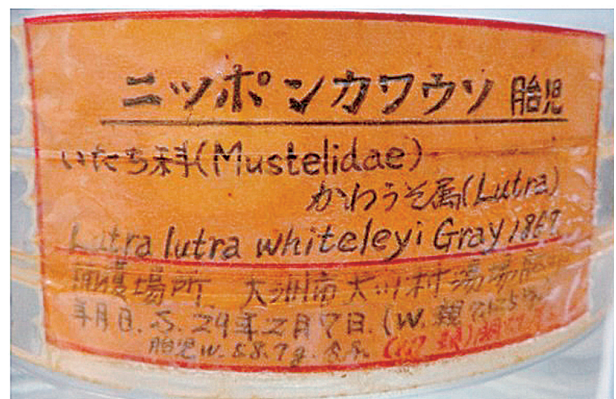 ニッポンカワウソ 胎児
いたち科(Mustelidae)
かわうそ属(Lutra)
Lutra lutra whiteleyi Gray 1867
捕獲場所 大洲市大川村
年月日 S. 29年2月7日. (W. 親
胎児 W. 58.7g.